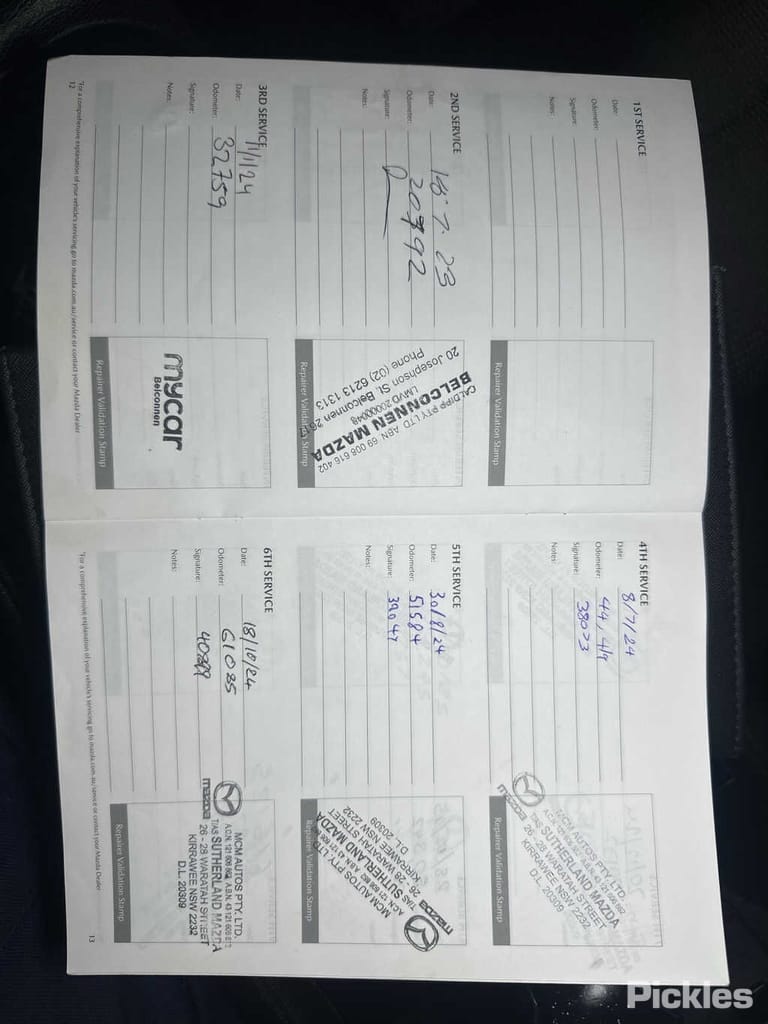 1ST SERVICE
Date:
Odometer:
Signature:
Notes:
Repairer Validation Stamp
2ND SERVICE
Date: 18.7.23
Odometer:
Signature:
Notes:
CALDIPP PTY LTD ABN 69 008 616 402
BELCONNEN MAZDA
LMVD 20000048
20 Josephson St. Belconnen
Phone (02) 6213 1313
Repairer Validation Stamp
3RD SERVICE
Date: 11/1/24
Odometer: 32759
Signature:
Notes:
mycar
Belconnen
Repairer Validation Stamp
*For a comprehensive explanation of your vehicle's servicing go to mazda.com.au/service or contact your Mazda Dealer
12
4TH SERVICE
Date: 8/7/24
Odometer: 44,
Signature: 38073
Notes:
mazda
MCM AUTOS PTY. LTD.
T/AS SUTHERLAND MAZDA
26 - 28 WARATAH STREET
KIRRAWEE NSW 2232
D.L. 20309
Repairer Validation Stamp
5TH SERVICE
Date: 30/8/24
Odometer: 51584
Signature: 39047
Notes:
mazda
MCM AUTOS PTY.
T/AS SUTHERLAND MAZDA
26 - 28 WARATAH STREET
KIRRAWEE NSW 2232
D.L. 20309
Repairer Validation Stamp
6TH SERVICE
Date: 18/10/24
Odometer: 61035
Signature:
Notes:
mazda
MCM AUTOS PTY. LTD.
T/AS SUTHERLAND MAZDA
26 - 28 WARATAH STREET
KIRRAWEE NSW 2232
D.L. 20309
Repairer Validation Stamp
*For a comprehensive explanation of your vehicle's servicing go to mazda.com.au/service or contact your Mazda Dealer
13
Pickles